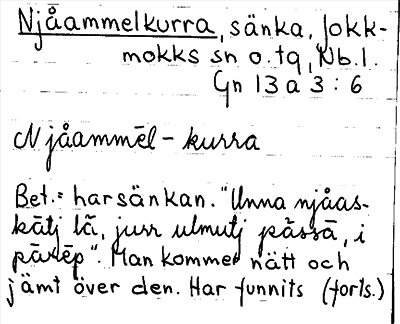 Njåammelkurra, sänka, Jokk-
mokks sn o. tg, Nb. l.
Gn 13 a 3 : 6
Njåammēl-kurra
Bet.: harsänkan. "Unna njåas-
kātj lā, jurr ulmutj pāssā, i
pātēp". Man kommer nätt och
jämt över den. Har funnits (forts.)